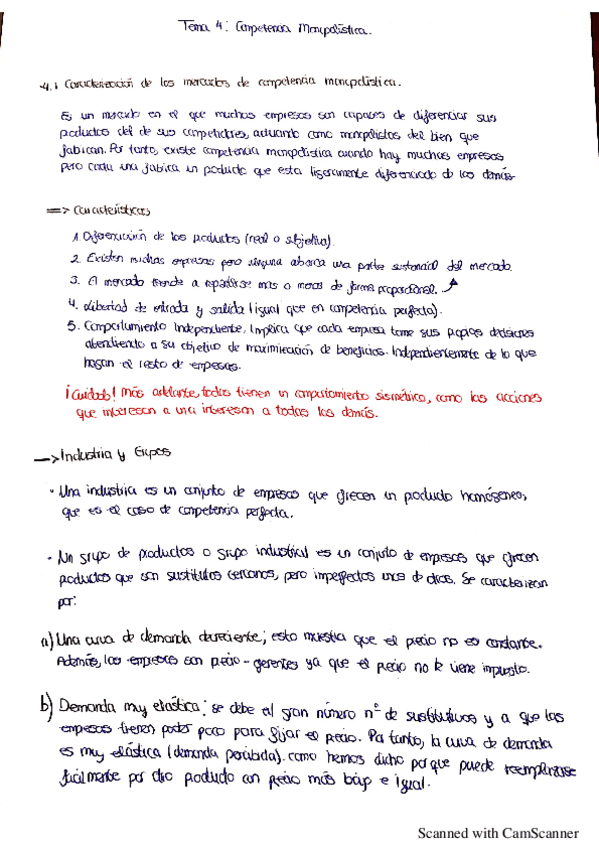 Tema 4: Competencia Monopolística.
4.1 Caracterización de los mercados de competencia monopolística.
Es un mercado en el que muchas empresas son capaces de diferenciar sus
productos del de sus competidores, actuando como monopolistas del bien que
fabican. Por tanto, existe competencia monopolística cuando hay muchas empresas
pero cada una fabrica un producto que esta ligeramente diferenciado de los demás.
=> Características
1. Diferenciación de los productos (real o subjetiva).
2. Existen muchas empresas pero ninguna abarca una parte sustancial del mercado.
3. El mercado tiende a repartirse más o menos de forma proporcional.
4. Libertad de entrada y salida (igual que en competencia perfecta).
5. Comportamiento Independiente, implica que cada empresa tome sus propias decisiones
atendiendo a su objetivo de maximización de beneficios. Independientemente de lo que
hagan el resto de empresas.
¡Cuidado! Más adelante, todas tienen un comportamiento simétrico, como las acciones
que interesan a una interesan a todas las demás.
→ Industria y Grupos
· Una industria es un conjunto de empresas que ofrecen un producto homogéneo,
que es el caso de competencia perfecta.
· Un grupo de productos o grupo industrial es un conjunto de empresas que ofrecen
productos que son sustitutos cercanos, pero imperfectos unos de otros. Se caracterizan
por:
a) Una curva de demanda decreciente; esto muestra que el precio no es constante.
Además, las empresas son precio-oferentes ya que el precio no le viene impuesto.
b) Demanda muy elástica: se debe al gran número nº de sustitutivos y a que las
empresas tienen poder poco para fijar el precio. Por tanto, la curva de demanda
es muy elástica (demanda percibida). como hemos dicho porque puede reemplazarse
fácilmente por otro producto con precio más bajo e igual.
Scanned with CamScanner